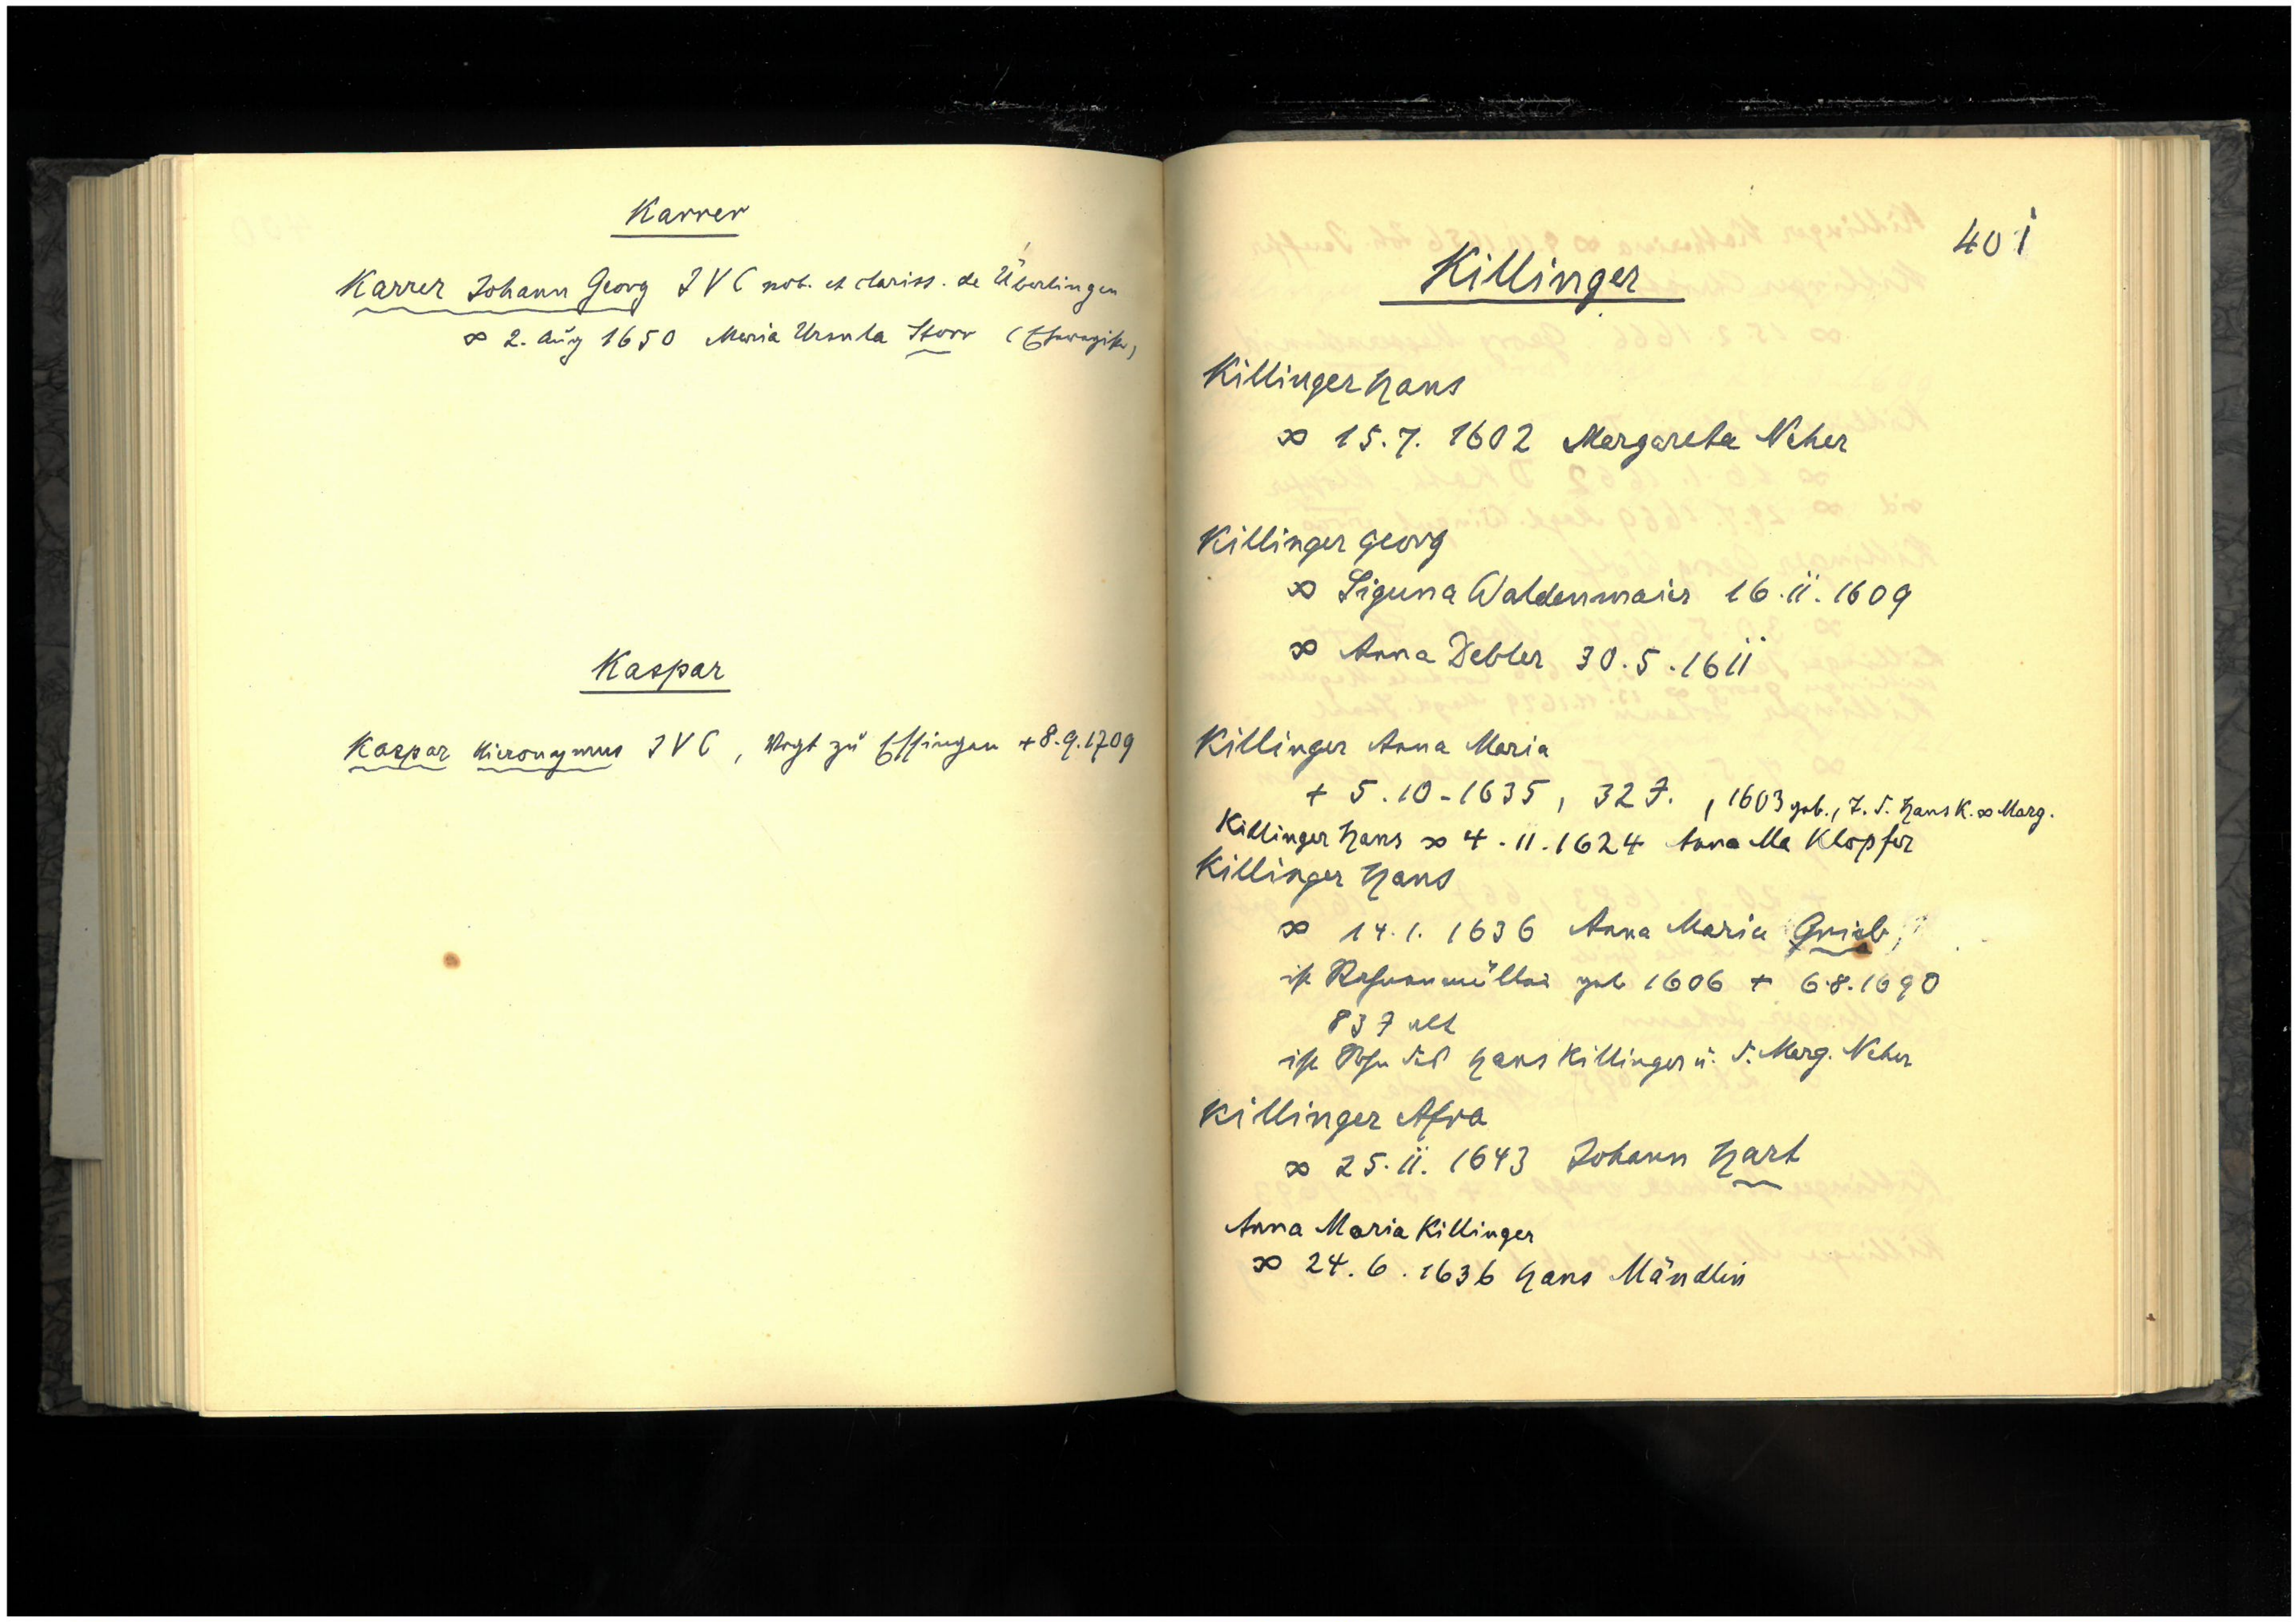 Karrer
Karrer Johann Georg IVC nob. et clariss. de Überlingen
∞ 2. Aug 1650 Maria Ursula Storr (Eheregister)
Kaspar
Kaspar Hieronymus IVC, Vogt zu Essingen + 8.9.1709
401
Killinger
Killinger Hans
∞ 15.7. 1602 Margareta Neher
Killinger Georg
∞ Siguna Waldenmaier 16.11.1609
∞ Anna Debler 30.5.1611
Killinger Anna Maria
+ 5.10.1635, 32 J., 1603 geb., T. d. Hans K. ∞ Marg.
Killinger Hans ∞ 4.11.1624 Anna Ma Klopfer
Killinger Hans
∞ 14.1. 1636 Anna Maria Grieb,
ist geb 1606 + 6.8.1690
83 J alt
ist Sohn des Hans Killinger u. d. Marg. Neher
Killinger Afra
∞ 25.11. 1643 Johann Hart
Anna Maria Killinger
∞ 24.6.1636 Hans Mändlin